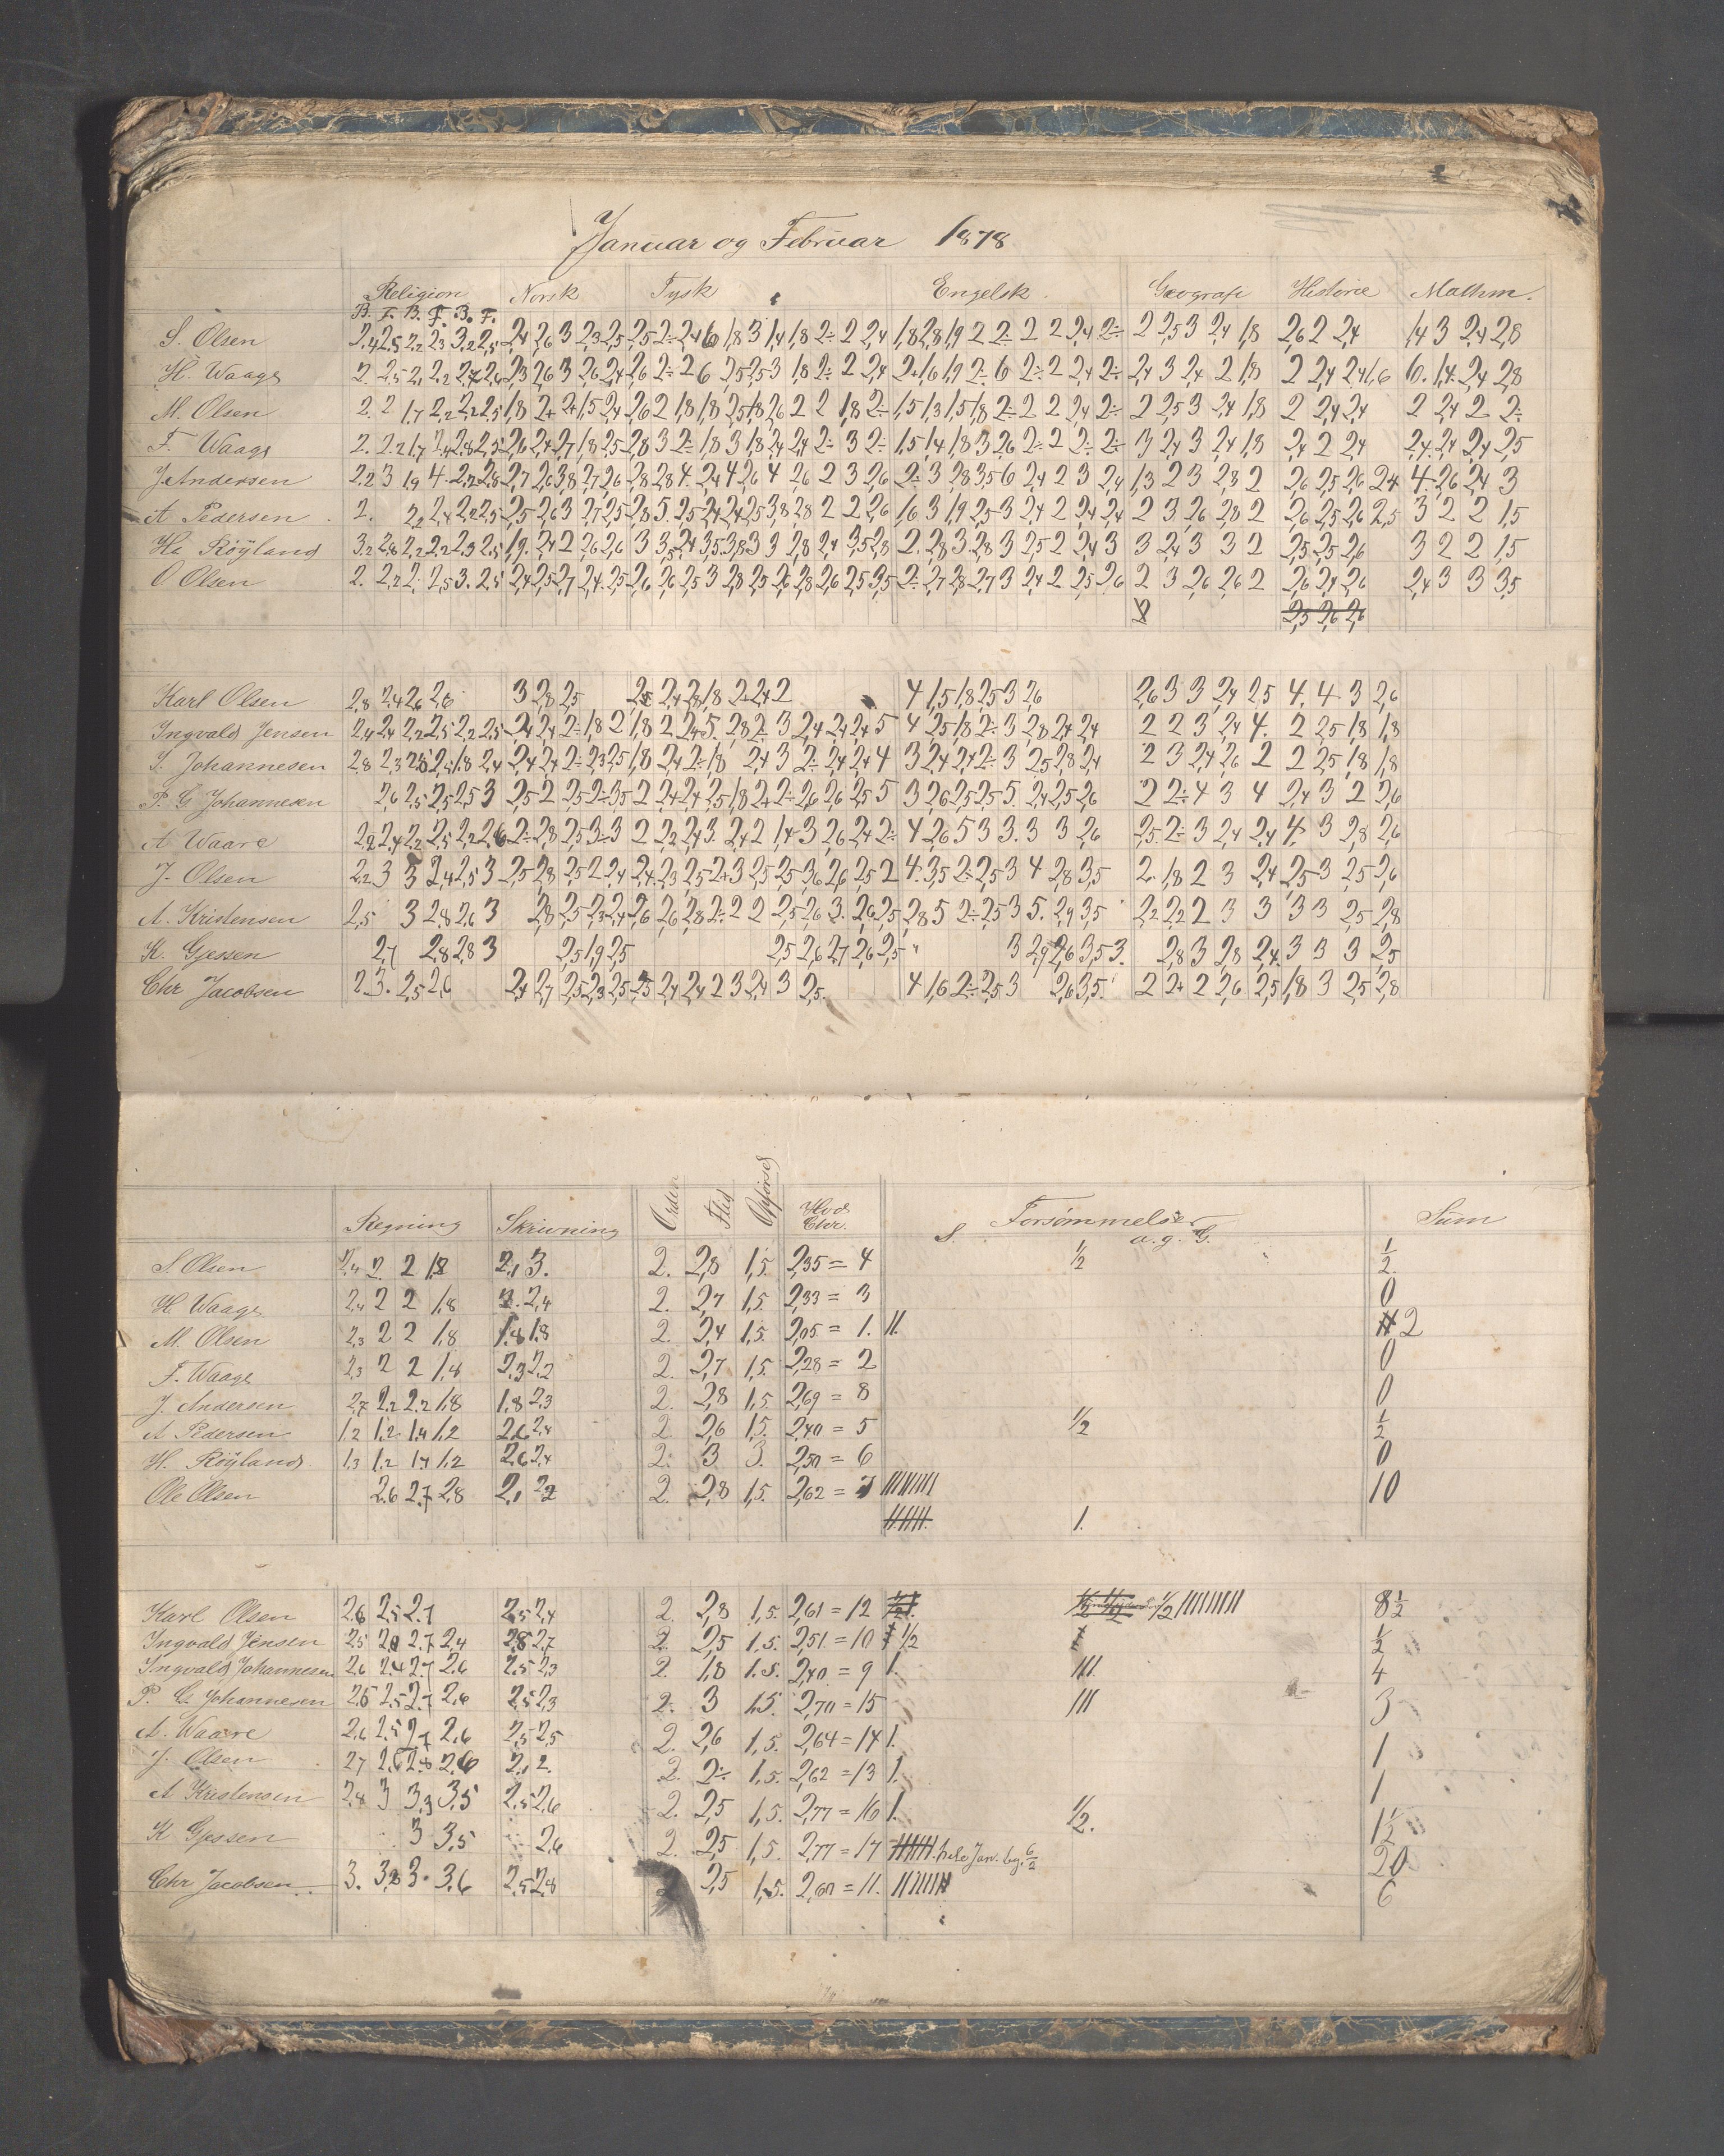 Januar og Februar 1878
Religion Norsk Tysk Engelsk Geografi Historie Mathm.
B. F. B. F. B. F.
S. Olsen 2,4 2,5 2,2 2,3 3,2 2,5 2,4 2,6 3 2,3 2,5 2,5 2÷ 2,4 1,8 3 1,4 1,8 2÷ 2 2,4 1,8 2,8 1,9 2 2 2 2 2,4 2÷ 2 2,5 3 2,4 1,8 2,6 2 2,4 1,4 3 2,4 2,8
H. Waage 2 2,5 2,1 2,2 2,7 2,6 2,3 2,6 3 2,6 2,4 2,6 2÷ 2,6 2,5 2,5 3 1,8 2÷ 2 2,4 2+ 1,6 1,9 2÷ 6 2÷ 2 2,4 2÷ 2,4 3 2,4 2 1,8 2 2,4 2,4 1,6 1,4 2,4 2,8
M. Olsen 2. 2 1,7 2,2 2,2 2,5 1,8 2+ 2+ 1,5 2,4 2,6 2 1,8 1,8 2,5 1,8 2,6 2 2 1,8 2÷ 1,5 1,3 1,5 1,8 2÷ 2 2 2,4 2÷ 2 2,5 3 2,4 1,8 2 2,4 2,4 2 2,4 2 2÷
F. Waage 2. 2,2 1,7 2,4 2,8 2,5 2,6 2,4 2,7 1,8 2,5 2,8 3 2÷ 1,8 3 1,8 2,4 2,4 2÷ 3 2÷ 1,5 1,4 1,8 3 2,6 2÷ 2 2÷ 2÷ 3 2,4 3 2,4 1,8 2,4 2 2,4 2,4 2,4 2,4 2,5
J. Andersen 2,2 3 1,9 4 2,2 2,8 2,7 2,6 3,8 2,7 2,6 2,8 2,8 4 2,4 4 2,6 4 2,6 2 3 2,6 2÷ 3 2,8 3,5 6 2,4 2 3 2,4 1,3 2 3 2,8 2 2,6 2,5 2,6 2,4 4 2,6 2,4 3
A Pedersen 2. 2,2 2,4 2,2 2,5 2,5 2,6 3 2,7 2,5 2,8 5 2,5 2,4 2,4 2,5 3,8 2,8 2 2 2,6 1,6 3 1,9 2,5 3 2,4 2 2,4 2,4 2 3 2,6 2,8 2 2,6 2,5 2,6 2,5 3 2 2 1,5
H. Röyland 3,2 2,8 2,2 2,2 2,3 2,5 1,9 2,4 2 2,6 2,6 3 3,5 2,4 3,5 3,8 3 3 2,8 2,4 3,5 2,8 2 2,8 3 2,8 3 2,5 2 2,4 3 3 2,4 3 3 2 2,5 2,5 2,6 3 2 2 1,5
O Olsen 2. 2,2 2 2,5 3 2,5 2,4 2,5 2,7 2,4 2,5 2,6 2,6 2,5 3 2,8 2,5 2,6 2,8 2,6 2,5 3,5 2÷ 2,7 2,8 2,7 3 2,4 2 2,5 2,6 2 3 2,6 2,6 2 2,6 2,4 2,6 2,4 3 3 3,5
2,5 2,6 2,6
Karl Olsen 2,8 2,4 2,6 2,6 3 2,8 2,5 2,4 2,8 1,8 2+ 2,4 2 4 1,5 1,8 2,5 3 2,6 2,6 3 3 2,4 2,5 4 4 3 2,6
Ingvald Jensen 2,4 2,4 2,2 2,5 2,2 2,5 2,4 2,4 2÷ 1,8 2 1,8 2 2,4 5 2,8 2÷ 3 2,4 2,4 2,4 5 4 2,5 1,8 2÷ 3 2,8 2,4 2,4 2 2 3 2,4 4 2 2,5 1,8 1,8
I. Johannesen 2,8 2,3 2,5 1,8 2,4 2,4 2,4 2÷ 2,3 2,5 1,8 2,4 2÷ 1,8 2,4 3 2÷ 2,4 2,4 4 3 2,4 2,4 2÷ 3 2,5 2,8 2,4 2 3 2,4 2,6 2 2 2,5 1,8 1,8
P. G Johannesen 2,6 2,5 2,5 2,5 3 2,5 2 2,5 2÷ 3,5 2 2,4 2,4 2,5 1,8 2+ 2÷ 2,6 2,6 2,5 5 3 2,6 2,5 2,5 5 2,4 2,5 2,6 2 2÷ 4 3 4 2,4 3 2 2,6
A Waare 2,2 2,4 2,2 2,5 2,2 2,6 2÷ 2,8 2,5 3÷ 3 2 2,2 2,4 3 2,4 2 1,4 3 2,6 2,4 2÷ 4 2,6 5 3 3 3 3 2,6 2,5 2÷ 3 2,4 2,4 4 3 2,8 2,6
J. Olsen 2,2 3 3 2,4 2,5 3 2,5 2,8 2,5 2 2,4 2,4 2,3 2,5 2+ 3 2,5 2,5 3,6 2,6 2,5 2 4 3,5 2÷ 2,5 3 4 2,8 3,5 2 1,8 2 3 2,4 2,5 3 2,5 2,6
A. Kristensen 2,5 3 2,8 2,6 3 2,8 2,5 2,3 2,4 2,6 2,6 2,8 2÷ 2 2 2,5 2,6 3 2,6 2,5 2,8 5 2÷ 2,5 3 5 2,9 3,5 2,2 2,2 2 3 3 3 3 2,5 2,8
K. Gjessen 2,7 2,8 2,8 3 2,5 1,9 2,5 2,5 2,6 2,7 2,6 2,5 3 2,9 2,6 3,5 3 2,8 3 2,8 2,4 3 3 3 2,5
Chr Jacobsen 2 3 2,5 2,6 2,4 2,7 2,5 2,3 2,5 2,5 2,4 2,4 2 3 2,4 3 2,5 4 1,6 2÷ 2,5 3 2,6 3,5 2 2+ 2 2,6 2,5 1,8 3 2,5 2,8
Regning Skrivning Orden Flid Opførsel Hvd Chr. Forsømmelser Sum
S. a. g. G.
S Olsen 2,4 2 2 1,8 2,1 3. 2. 2,8 1,5. 2,35 = 4 1/2 1/2
H Waage 2,4 2 2 1,8 3. 2,4 2. 2,7 1,5. 2,33 = 3 0
M. Olsen 2,3 2 2 1,8 1,8 1,8 2. 2,4 1,5. 2,05 = 1. II. 2
F. Waage 2,3 2 2 1,8 2,3 2,2 2. 2,7 1,5. 2,28 = 2 0
J. Andersen 2,7 2,2 2,2 1,8 1,8 2,3 2. 2,8 1,5 2,69 = 8 0
A Pedersen 1,2 1,2 1,4 1,2 2,6 2,4 2 2,6 1,5. 2,40 = 5 1/2 1/2
H. Röyland 1,3 1,2 1,4 1,2 2,6 2,4 2. 3 3. 2,50 = 6 0
Ole Olsen 2,6 2,7 2,8 2,1 2,2 2. 2,8 1,5. 2,62 = 7 IIIIIIIII 10
1.
Karl Olsen 2,6 2,5 2,7 2,5 2,4 2. 2,8 1,5. 2,61 = 12 1/2 IIIIIIII 8 1/2
Ingvald Jensen 2,5 2,7 2,4 2,8 2,7 2. 2,5 1,5. 2,51. = 10 1/2 1/2
Ingvald Johannesen 2,6 2,4 2,7 2,6 2,5 2,3 2. 1,8 1,5. 2,40 = 9 1. III. 4
P. G. Johannesen 2,6 2,5 2,7 2,6 2,5 2,3 2. 3 1,5. 2,70 = 15 III 3
A. Waare 2,6 2,5 2,7 2,6 2,5 2,5 2. 2,6 1,5. 2,64 = 14 1. 1
J. Olsen 2,7 2,6 2,8 2,6 2,1 2. 2. 2÷ 1,5. 2,62 = 13 1. 1
A Kristensen 2,8 3 3,3 3,5 2,5 2,6 2. 2,5 1,5. 2,77 = 16 1. 1/2. 1 1/2
K Gjessen 3 3,5 2,6 2. 2,5 1,5. 2,77 = 17 hele Jan. beg. 6/2 20
Chr Jacobsen 3. 3,3 3. 3,6 2,5 2,8 2,5 1,5. 2,60 = 11. 6